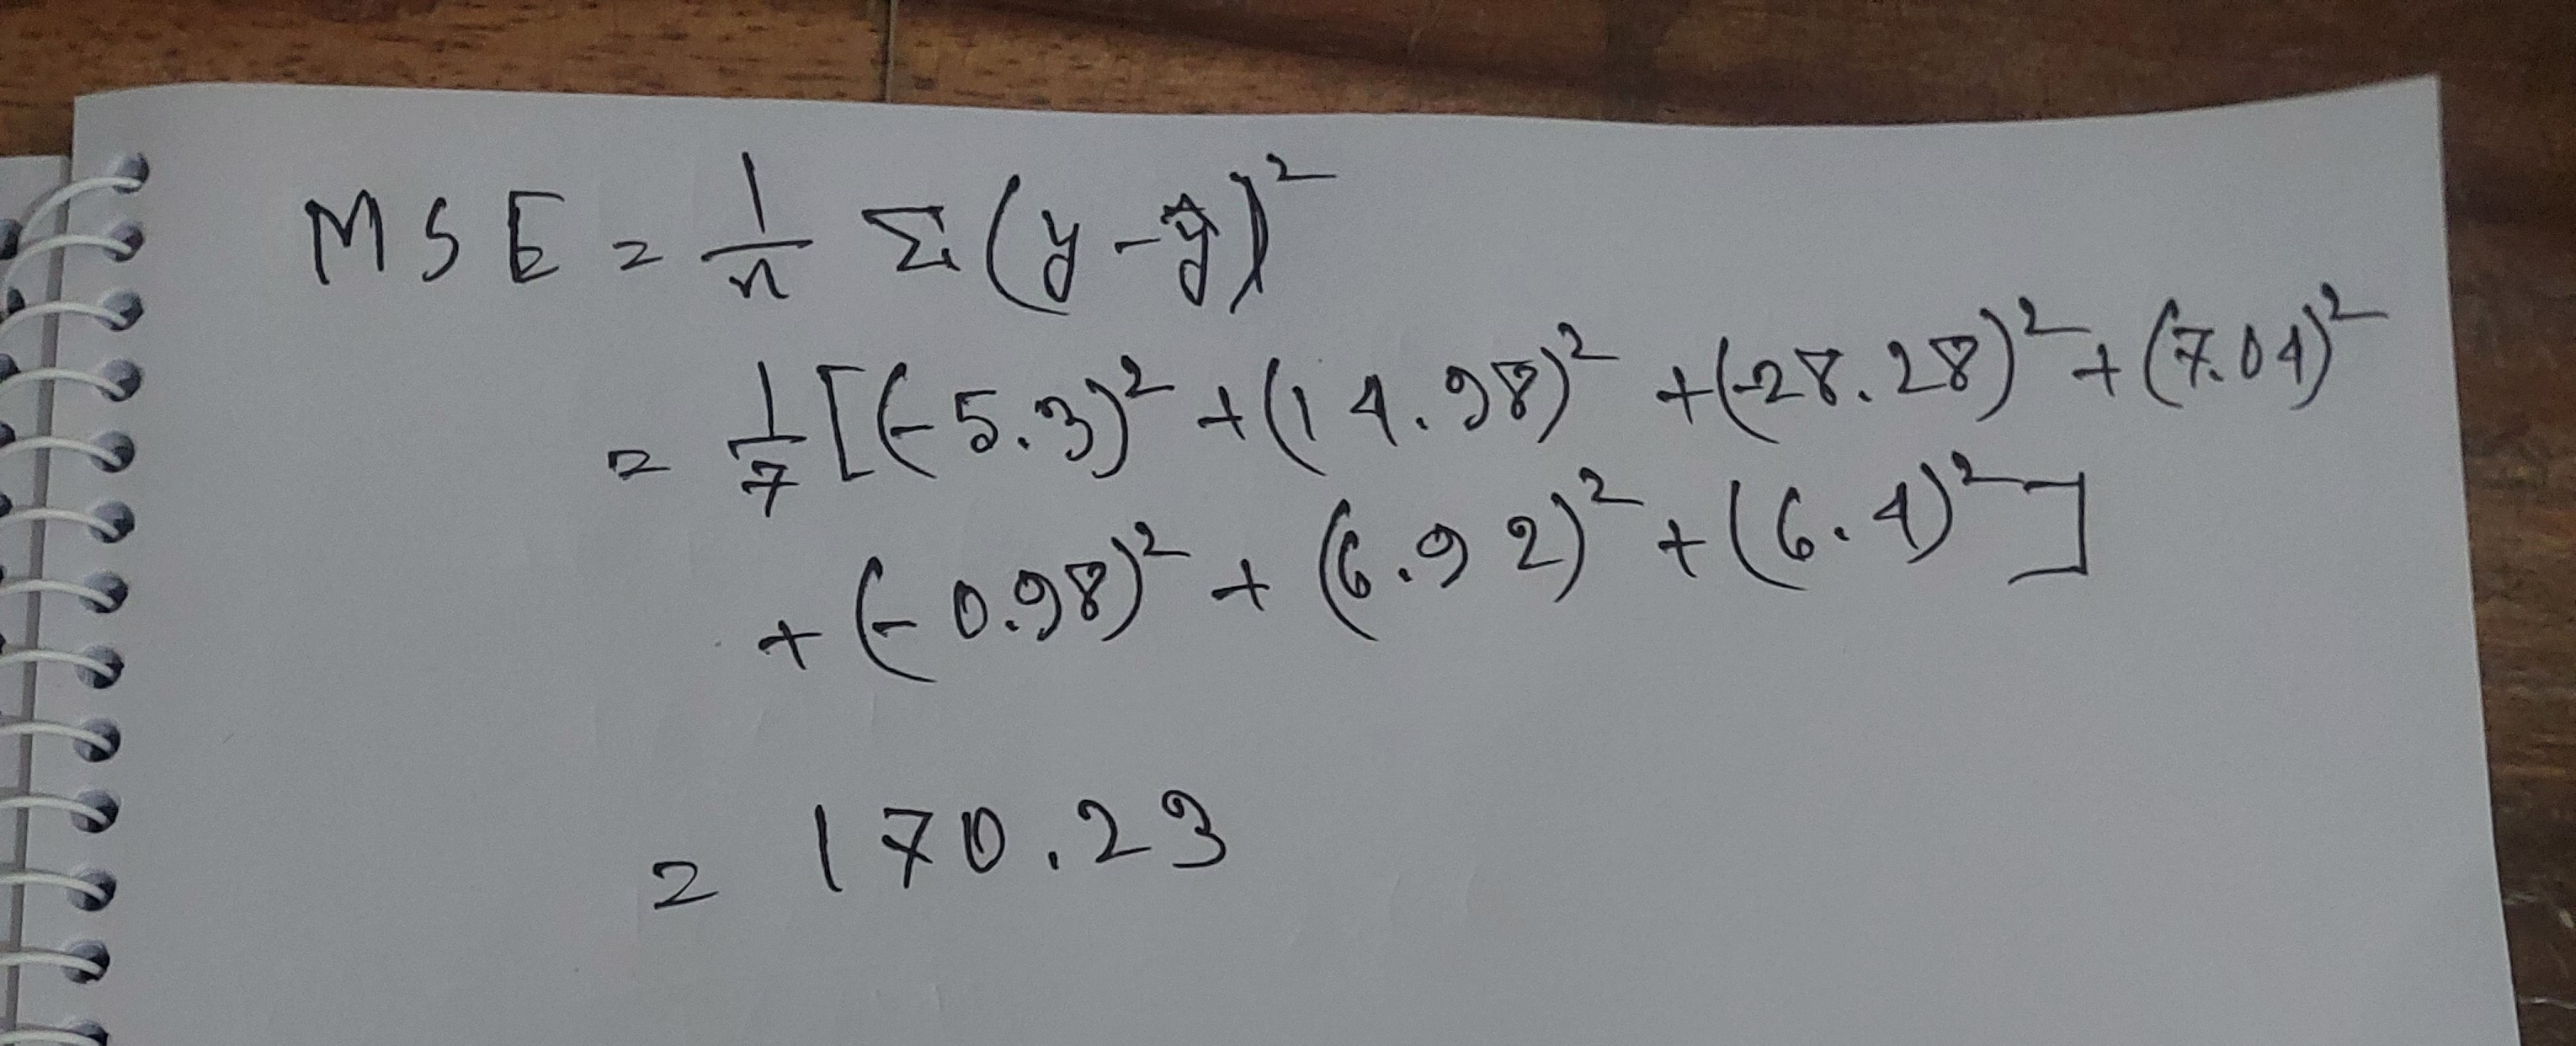 MSE = 1/n Σ(y-ŷ)²
= 1/7 [(-5.3)² + (14.98)² + (-28.28)² + (7.04)²
+ (-0.98)² + (6.92)² + (6.4)²]
= 170.23